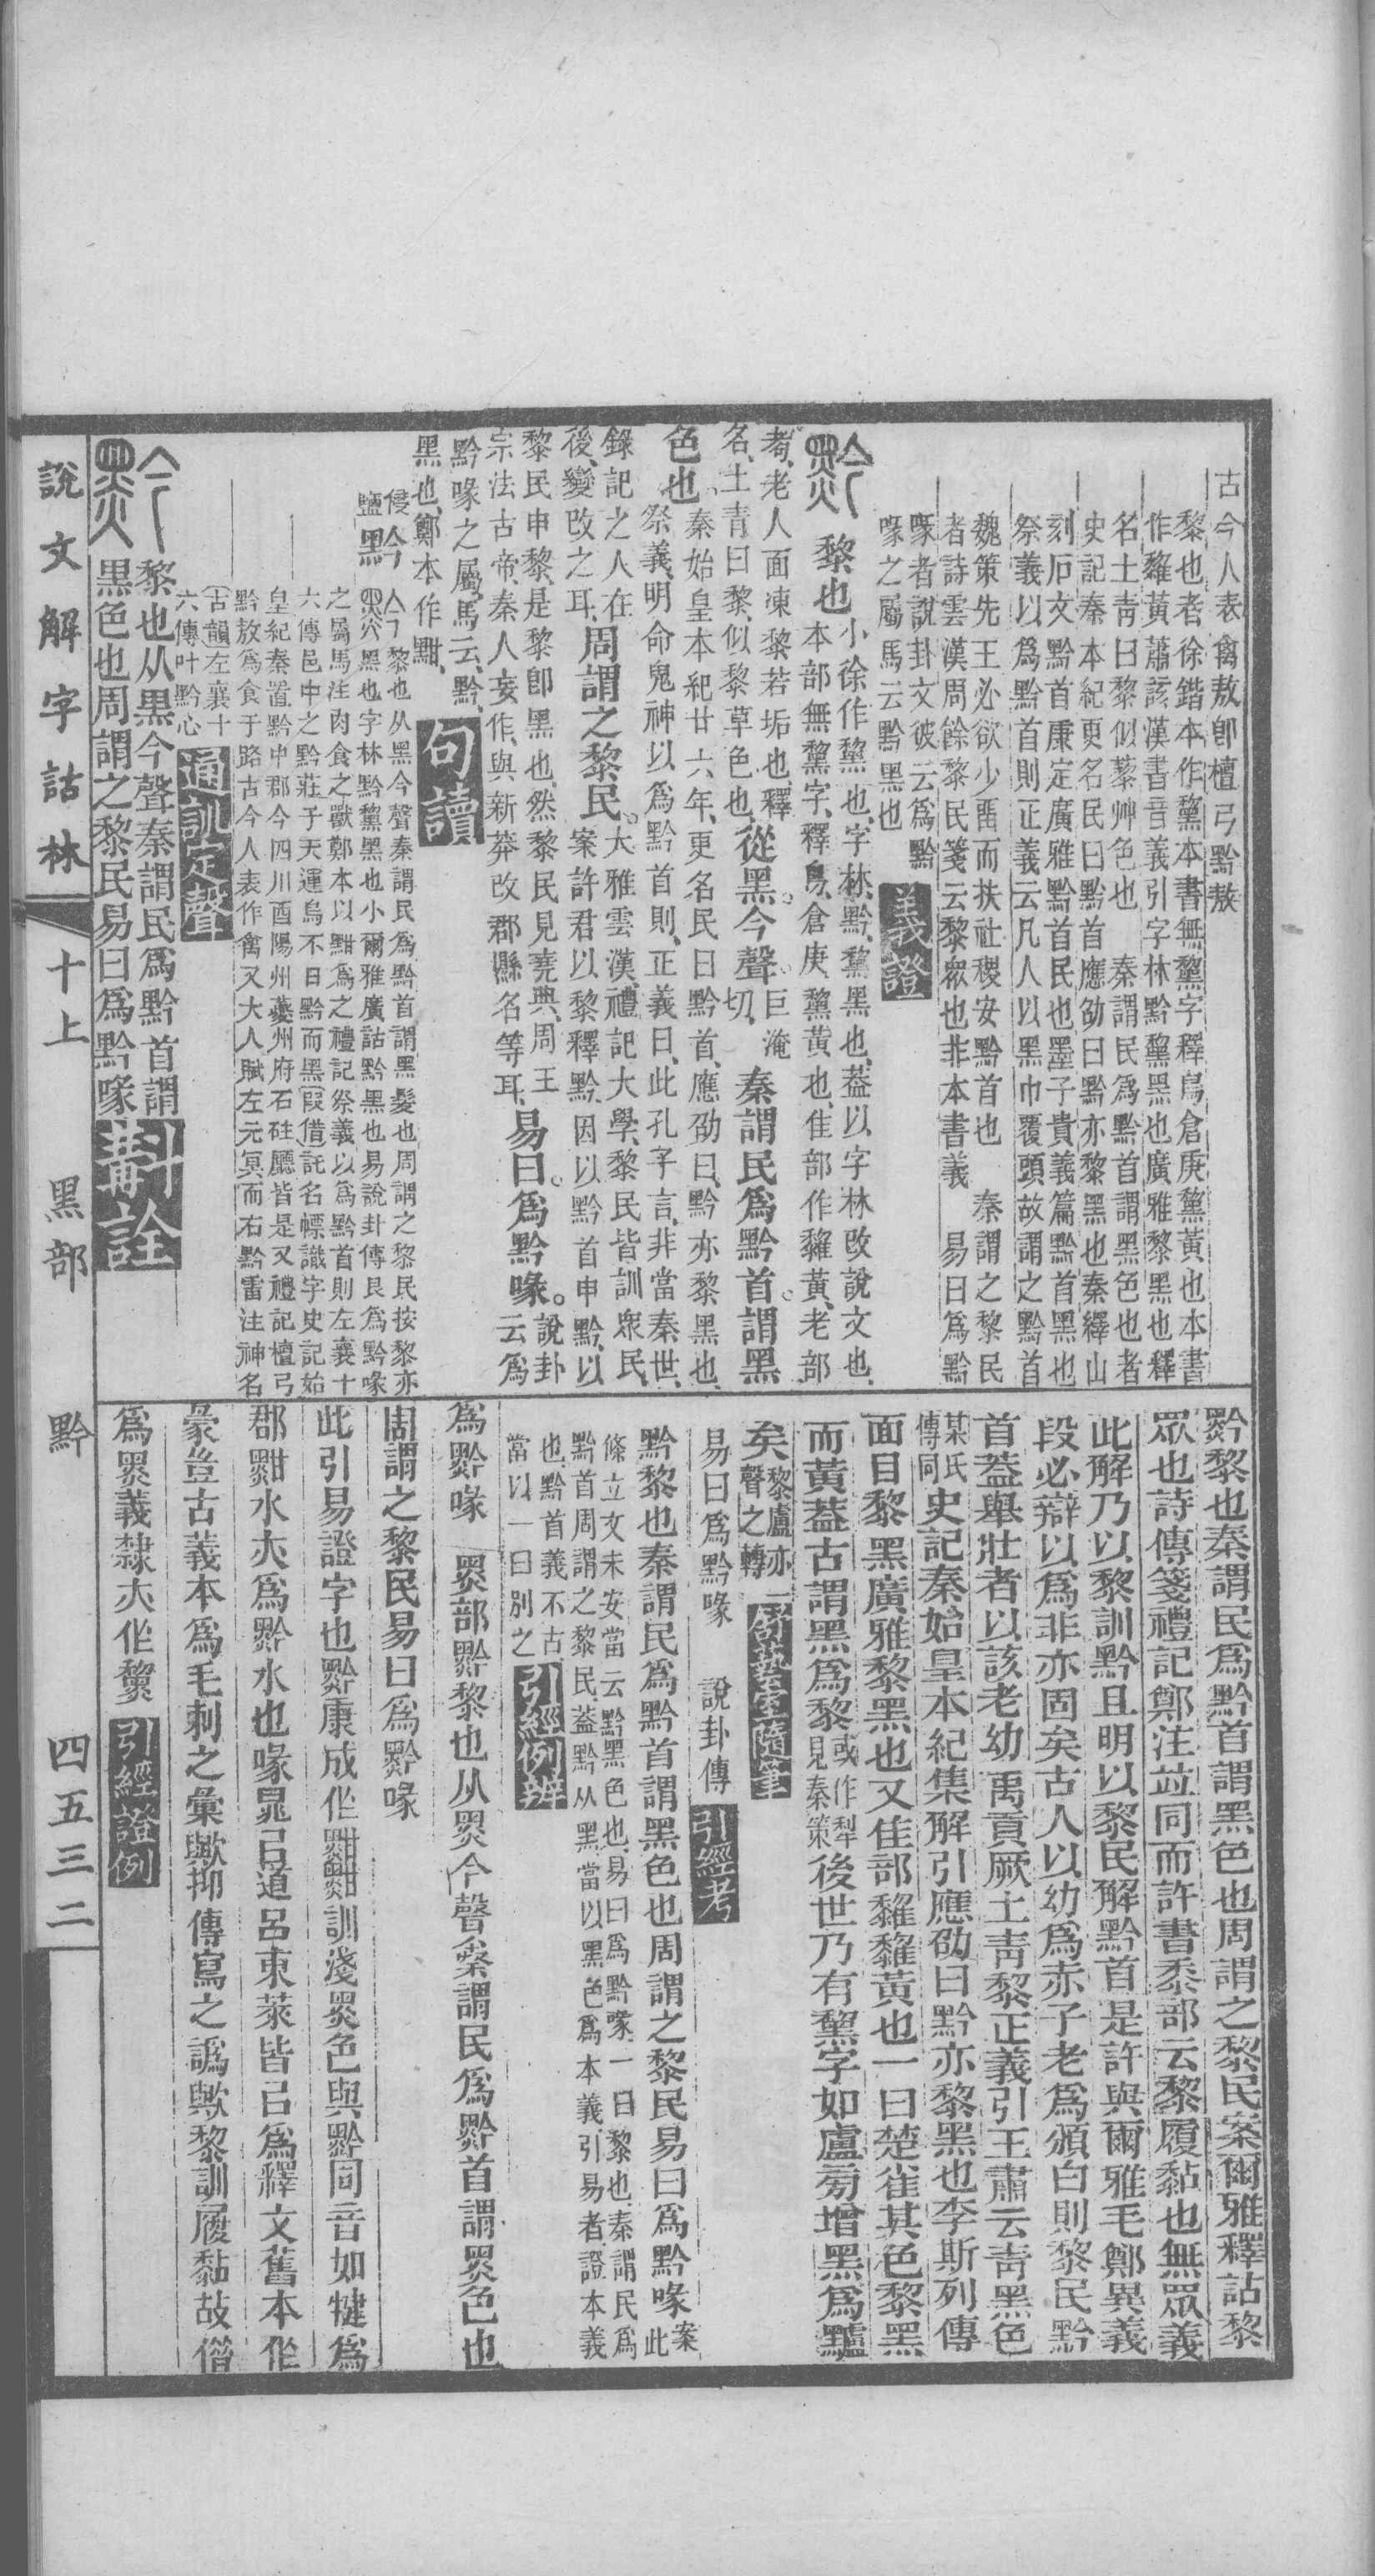 古今人表禽敖卽檀弓黔敖
黎也者徐鍇本作黧本書無黧字釋鳥倉庚黧黃也本書
作雞黃蕭該漢書音義引字林黔黧黑也廣雅黎黑也釋
名土靑曰黎似藜艸色也　秦謂民爲黔首謂黑色也者
史記秦本紀更名民曰黔首應劭曰黔亦黎黑也秦繹山
刻石文黔首康定廣雅黔首民也墨子貴義篇黔首黑也
祭義以爲黔首則正義云凡人以黑巾覆頭故謂之黔首
魏策先王必欲少留而扶社稷安黔首也　秦謂之黎民
者詩雲漢周餘黎民箋云黎衆也非本書義　易曰爲黔
喙者說卦文彼云爲黔
喙之屬馬云黔黑也
義證
黎也
小徐作黧也、字林、黔、黧黑也、蓋以字林改說文也、
本部無黧字、釋鳥、倉庚、黧黃也、隹部作雞黃、老部
耇、老人面凍黎若垢也、釋
名、土青曰黎、似黎草色也、
從黑。今聲。
巨淹
切、
秦謂民爲黔首。謂黑
色也、
秦始皇本紀廿六年、更名民曰黔首、應劭曰、黔亦黎黑也、
祭義、明命鬼神以爲黔首則、正義曰、此孔子言、非當秦世、
錄記之人在
後、變改之耳、
周謂之黎民。
大雅雲漢、禮記大學、黎民皆訓衆民、
案許君以黎釋黔、因以黔首申黔、以
黎民申黎、是黎卽黑也、然黎民見堯典、周王
宗法古帝、秦人妄作、與新莽改郡縣名等耳、
易曰。爲黔喙。
說卦
云爲
黔喙之屬、馬云、黔、
黑也、鄭本作黚、
句讀
侵
鹽
黔
黎也从黑今聲秦謂民爲黔首謂黑髮也周謂之黎民按黎亦
黑也字林黔黧黑也小爾雅廣詁黔黑也易說卦傳艮爲黔喙
之屬馬注肉食之獸鄭本以黚爲之禮記祭義以爲黔首則左襄十
六傳邑中之黔莊子天運烏不日黔而黑叚借託名幖識字史記始
皇紀秦置黔中郡今四川酉陽州夔州府石砫廳皆是又禮記檀弓
黔敖爲食于路古今人表作禽又大人賦左元冥而右黔雷注神名
古韻左襄十
六傳叶黔心
通訓定聲
黎也从黑今聲秦謂民爲黔首謂
黑色也周謂之黎民易曰爲黔喙
斠詮
黔黎也秦謂民爲黔首謂黑色也周謂之黎民案爾雅釋詁黎
眾也詩傳箋禮記鄭注竝同而許書黍部云黎履黏也無眾義
此解乃以黎訓黔且明以黎民解黔首是許與爾雅毛鄭異義
段必辯以爲非亦固矣古人以幼爲赤子老爲頒白則黎民黔
首蓋舉壯者以該老幼禹貢厥土靑黎正義引王肅云靑黑色
某氏
傳同
史記秦始皇本紀集解引應劭曰黔亦黎黑也李斯列傳
面目黎黑廣雅黎黑也又隹部雞雞黃也一曰楚雀其色黎黑
而黃蓋古謂黑爲黎
或作犁
見秦策
後世乃有黧字如盧旁增黑爲黸
矣
黎盧亦一
聲之轉
舒蓺室隨筆
易曰爲黔喙　說卦傳
引經考
黔黎也秦謂民爲黔首謂黑色也周謂之黎民易曰爲黔喙
案
此
條立文未安當云黔黑色也、易曰爲黔喙、一曰黎也、秦謂民爲
黔首周謂之黎民、蓋黔从黑、當以黑色爲本義引易者、證本義
也、黔首義不古、
當以一曰別之
引經例辨
爲黔喙　黑部黔黎也从黑今聲秦謂民爲黔首謂黑色也
周謂之黎民易曰爲黔喙
此引易證字也黔康成作黚黚訓淺黑色與黔同音如犍爲
郡黚水亦爲黔水也喙晁㠯道呂東萊皆㠯爲釋文舊本作
彖豈古義本爲毛刺之彙歟抑傳寫之譌歟黎訓履黏故借
爲黑義隸亦作黧
引經證例
說文解字詁林
十上　黑部　黔　四五三二